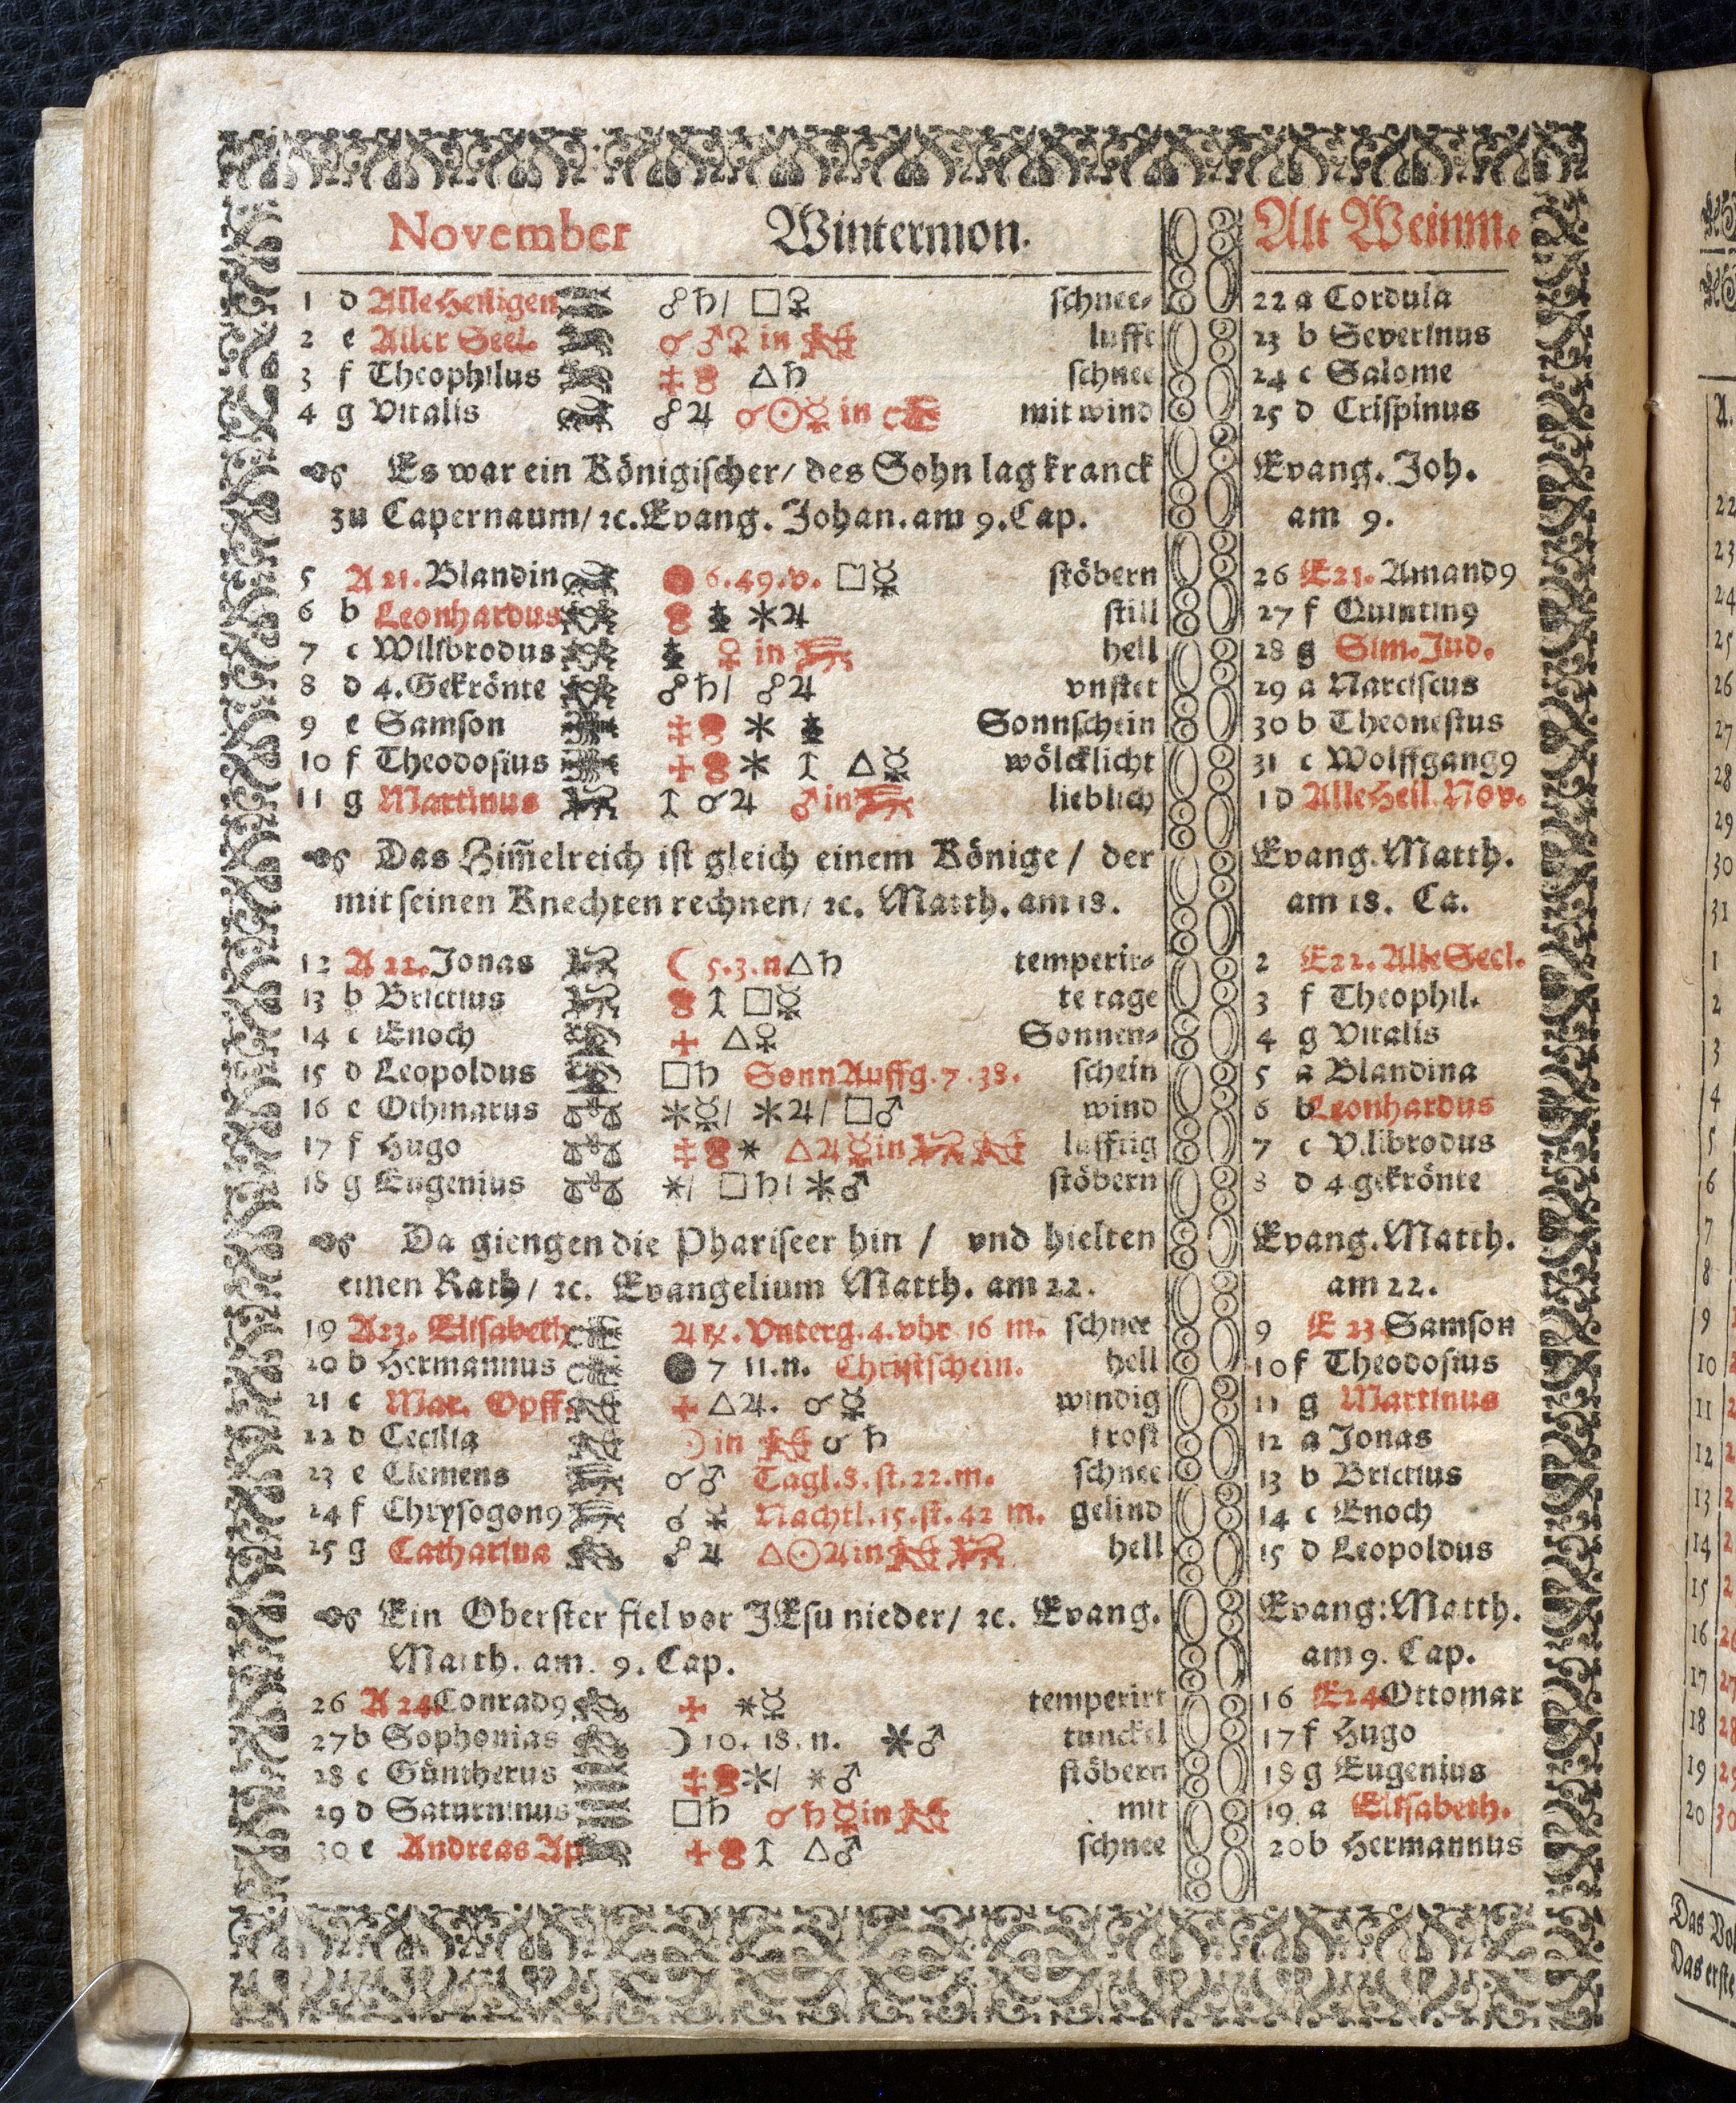 November Wintermon. Alt Weinm.
1 d Alle Heiligen ☍♄/ □♀ schnee- 22 a Cordula
2 e Aller Seel. ☌♂♀ in lufft 23 b Severinus
3 f Theophilus △♄ schnee 24 c Salome
4 g Vitalis ☍♃ ☌☉☿ in mit wind 25 d Crispinus
Es war ein Königischer/ des Sohn lag kranck Evang. Joh.
zu Capernaum/ ꝛc. Evang. Johan. am 9. Cap. am 9.
5 A 21. Blandin 6.49.v. □☿ stöbern 26 E21. Amand9
6 b Leonhardus ✶♃ still 27 f Quintin9
7 c Willibrodus ♀ in hell 28 g Sim. Jud.
8 d 4. Gekrönte ☍♄/ ☍♃ vnstet 29 a Narciscus
9 e Samson ✶ Sonnschein 30 b Theonestus
10 f Theodosius ✶ △☿ wölcklicht 31 c Wolffgang9
11 g Martinus ☌♃ ♂ in lieblich 1 d Alle Heil. Nov.
Das Him̃elreich ist gleich einem Könige / der Evang. Matth.
mit seinen Knechten rechnen/ ꝛc. Matth. am 18. am 18. Ca.
12 A 22. Jonas ☾ 5.3.n. △♄ temperir- 2 E22. Alle Seel.
13 b Brictius □☿ te tage 3 f Theophil.
14 c Enoch △♀ Sonnen- 4 g Vitalis
15 d Leopoldus □♄ Sonn Auffg. 7. 38. schein 5 a Blandina
16 e Othmarus ✶☿/ ✶♃/ □♂ wind 6 b Leonhardus
17 f Hugo ✶ △♃☿ in lufftig 7 c Willibrodus
18 g Eugenius ✶/ □♄/ ✶♂ stöbern 8 d 4 gekrönte
Da giengen die Phariseer hin / vnd hielten Evang. Matth.
einen Rath/ ꝛc. Evangelium Matth. am 22. am 22.
19 A23. Elisabeth ♃ ℞. Vnterg. 4. vhr 16 m. schnee 9 E 23. Samson
20 b Hermannus 7 11.n. Christschein. hell 10 f Theodosius
21 c Mar. Opff. △♃. ☌☿ windig 11 g Martinus
22 d Cecilia ☽ in ☌ ♄ frost 12 a Jonas
23 e Clemens ☌♂ Tagl. 8. st. 22. m. schnee 13 b Brictius
24 f Chrysogon9 ☌ ♀ Nachtl. 15. st. 42 m. gelind 14 c Enoch
25 g Catharina ☍ ♃ △☉♃ in hell 15 d Leopoldus
Ein Oberster fiel vor JEsu nieder/ ꝛc. Evang. Evang: Matth.
Matth. am. 9. Cap. am 9. Cap.
26 A 24. Conrad9 ✶☿ temperirt 16 E24 Ottomar
27 b Sophonias ☽ 10. 18. n. ✶♂ tunckel 17 f Hugo
28 c Güntherus ✶/ ✶♂ stöbern 18 g Eugenius
29 d Saturninus □♄ ☌♄☿ in mit 19 a Elisabeth.
30 e Andreas Ap △♂ schnee 20 b Hermannus